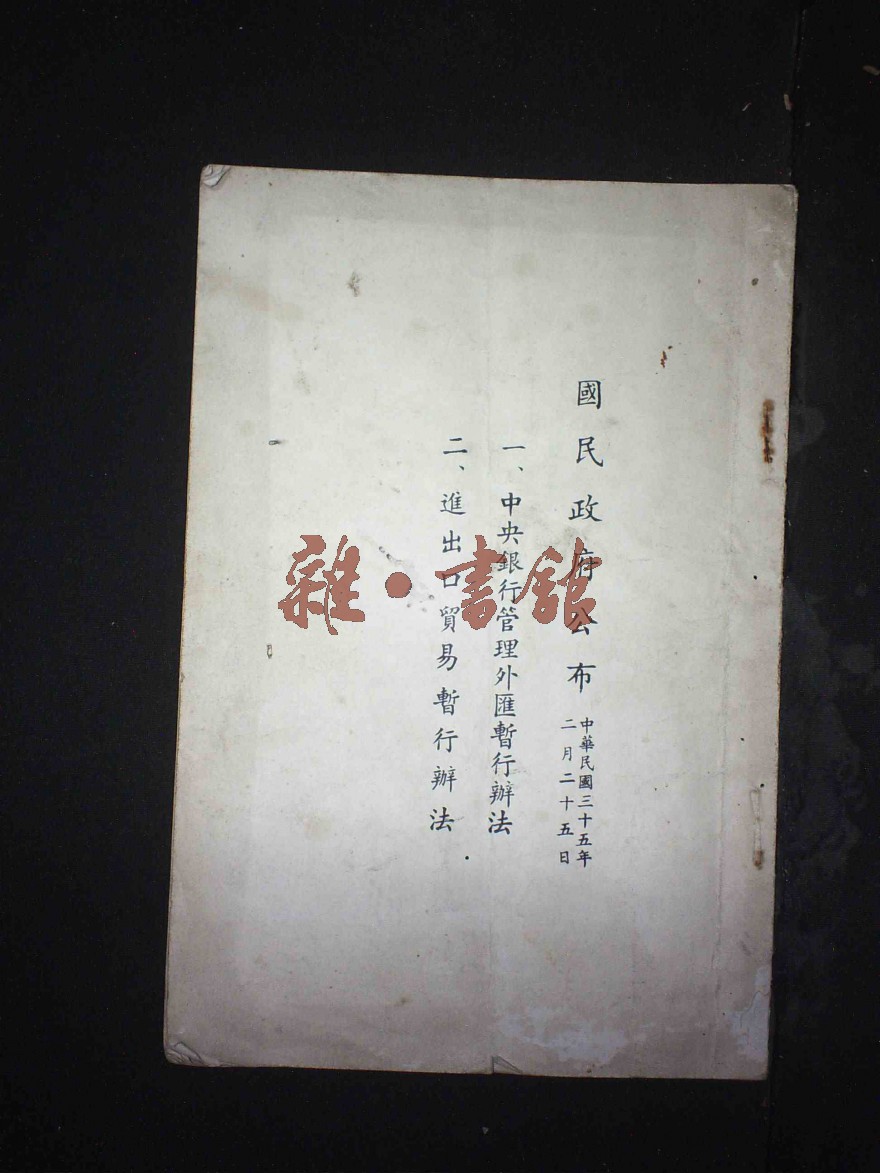 國民政府公布
中華民國三十五年
二月二十五日
一、中央銀行管理外匯暫行辦法
二、進出口貿易暫行辦法
雜·書館